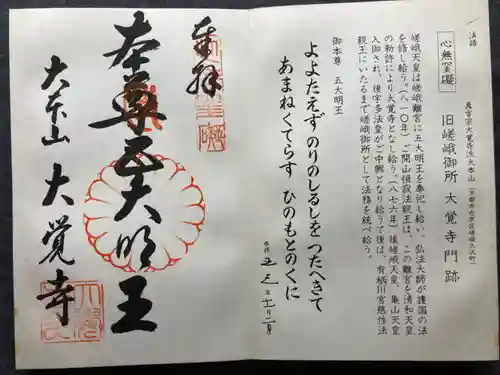 法語
心無罣礙
真言宗大覚寺派大本山（京都市右京区嵯峨大沢町）
旧嵯峨御所 大覚寺門跡
嵯峨天皇は嵯峨離宮に五大明王を奉祀し給い、弘法大師が護国の法
を修し給う（八一〇年）ご開山恒寂法親王は、この離宮を清和天皇
の勅許により大覚寺となし給う（八七六年）後嵯峨天皇、亀山天皇
入御され、後宇多法皇がご中興となり給うて後は、有栖川宮慈性法
親王にいたるまで嵯峨御所として法務を統べ給う。
御本尊 五大明王
よよたえず のりのしるしを つたへきて
あまねくてらす ひのもとのくに
奉拝
五大明王
本尊
大本山 大覚寺